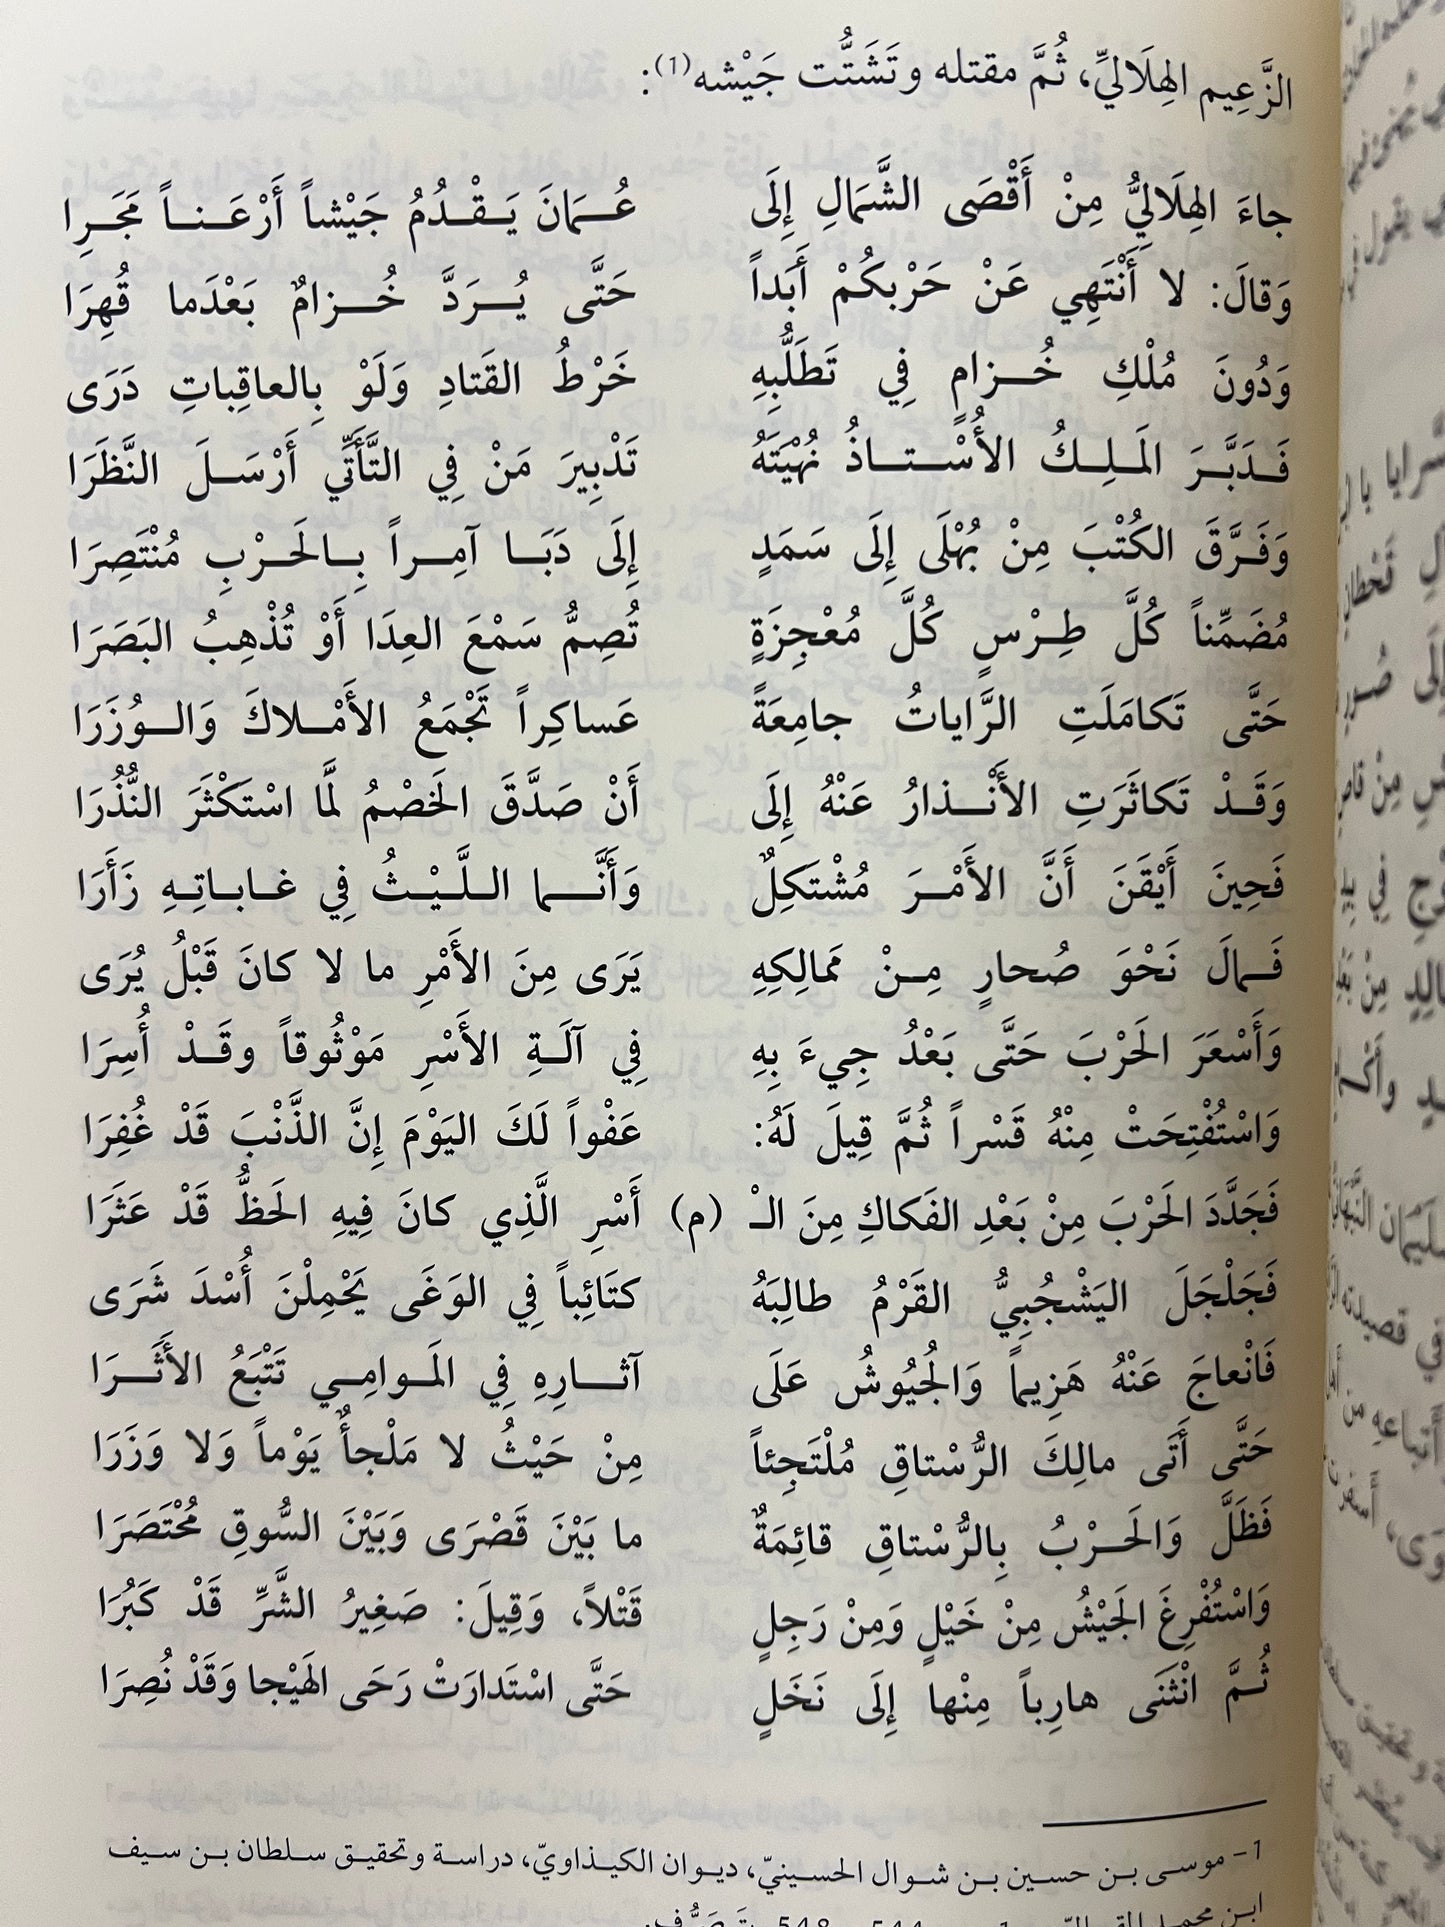 الزَّعِيم الهِلَاليِّ، ثُمَّ مقتله وتَشَتُّت جَيْشه(1):
جاءَ الهِلَالِيُّ مِنْ أَقْصَى الشَّمَالِ إِلَى عُمَانَ يَقْدُمُ جَيْشاً أَرْعَناً مَجَرِا
وَقالَ: لا أَنْتَهِي عَنْ حَرْبكُمْ أَبَداً حَتَّى يُرَدَّ خُزامٌ بَعْدَما قُهِرَا
وَدُونَ مُلْكِ خُزامٍ فِي تَطَلُّبِهِ خَرْطُ القَتادِ وَلَوْ بِالعاقِباتِ دَرَى
فَدَبَّرَ المَلِكُ الأُسْتاذُ نُهْيَتَهُ تَدْبِيرَ مَنْ فِي التَّأَتِّي أَرْسَلَ النَّظَرَا
وَفَرَّقَ الكُتْبَ مِنْ بُهْلَى إِلَى سَمَدٍ إِلَى دَبَا آمِراً بِالحَرْبِ مُنْتَصِرَا
مُضَمِّناً كُلَّ طِرْسٍ كُلَّ مُعْجِزَةٍ تُصِمُّ سَمْعَ العِدَا أَوْ تُذْهِبُ البَصَرَا
حَتَّى تَكامَلَتِ الرَّاياتُ جامِعَةً عَساكِراً تَجْمَعُ الأَمْلاكَ وَالوُزَرَا
وَقَدْ تَكاثَرَتِ الأَنْذارُ عَنْهُ إِلَى أَنْ صَدَّقَ الخَصْمُ لَمَّا اسْتَكْثَرَ النُّذُرَا
فَحِينَ أَيْقَنَ أَنَّ الأَمْرَ مُشْتَكِلٌ وَأَنَّما اللَّيْثُ فِي غاباتِهِ زَأَرَا
فَمالَ نَحْوَ صُحارٍ مِنْ مَمالِكِهِ يَرَى مِنَ الأَمْرِ ما لا كانَ قَبْلُ يُرَى
وَأَسْعَرَ الحَرْبَ حَتَّى بَعْدُ جِيءَ بِهِ فِي آلَةِ الأَسْرِ مَوْثُوقاً وقَدْ أُسِرَا
وَاسْتُفْتِحَتْ مِنْهُ قَسْراً ثُمَّ قِيلَ لَهُ: عَفْواً لَكَ اليَوْمَ إِنَّ الذَّنْبَ قَدْ غُفِرَا
فَجَدَّدَ الحَرْبَ مِنْ بَعْدِ الفَكاكِ مِنَ الـْ (م) أَسْرِ الَّذِي كانَ فِيهِ الحَظُّ قَدْ عَثَرَا
فَجَلْجَلَ اليَشْجُبِيُّ القَرْمُ طالِبَهُ كتَائِباً فِي الوَغَى يَحْمِلْنَ أُسْدَ شَرَى
فَانْعاجَ عَنْهُ هَزِيماً وَالجُيُوشُ عَلَى آثارِهِ فِي المَوامِي تَتْبَعُ الأَثَرَا
حَتَّى أَتَى مالِكَ الرُّسْتاقِ مُلْتَجِئاً مِنْ حَيْثُ لا مَلْجأٌ يَوْماً وَلا وَزَرَا
فَظَلَّ وَالحَرْبُ بِالرُّسْتاقِ قائِمَةٌ ما بَيْنَ قَصْرَى وَبَيْنَ السُّوقِ مُحْتَصَرَا
وَاسْتُفْرِغَ الجَيْشُ مِنْ خَيْلٍ وَمِنْ رَجِلٍ قَتْلاً، وَقِيلَ: صَغِيرُ الشَّرِّ قَدْ كَبُرَا
ثُمَّ انْثَنَى هارِباً مِنْها إِلَى نَخَلٍ حَتَّى اسْتَدارَتْ رَحَى الهَيْجا وَقَدْ نُصِرَا
1- موسى بن حسين بن شوال الحسينيّ، ديوان الكيذاويّ، دراسة وتحقيق سلطان بن سيف
ابن محمد